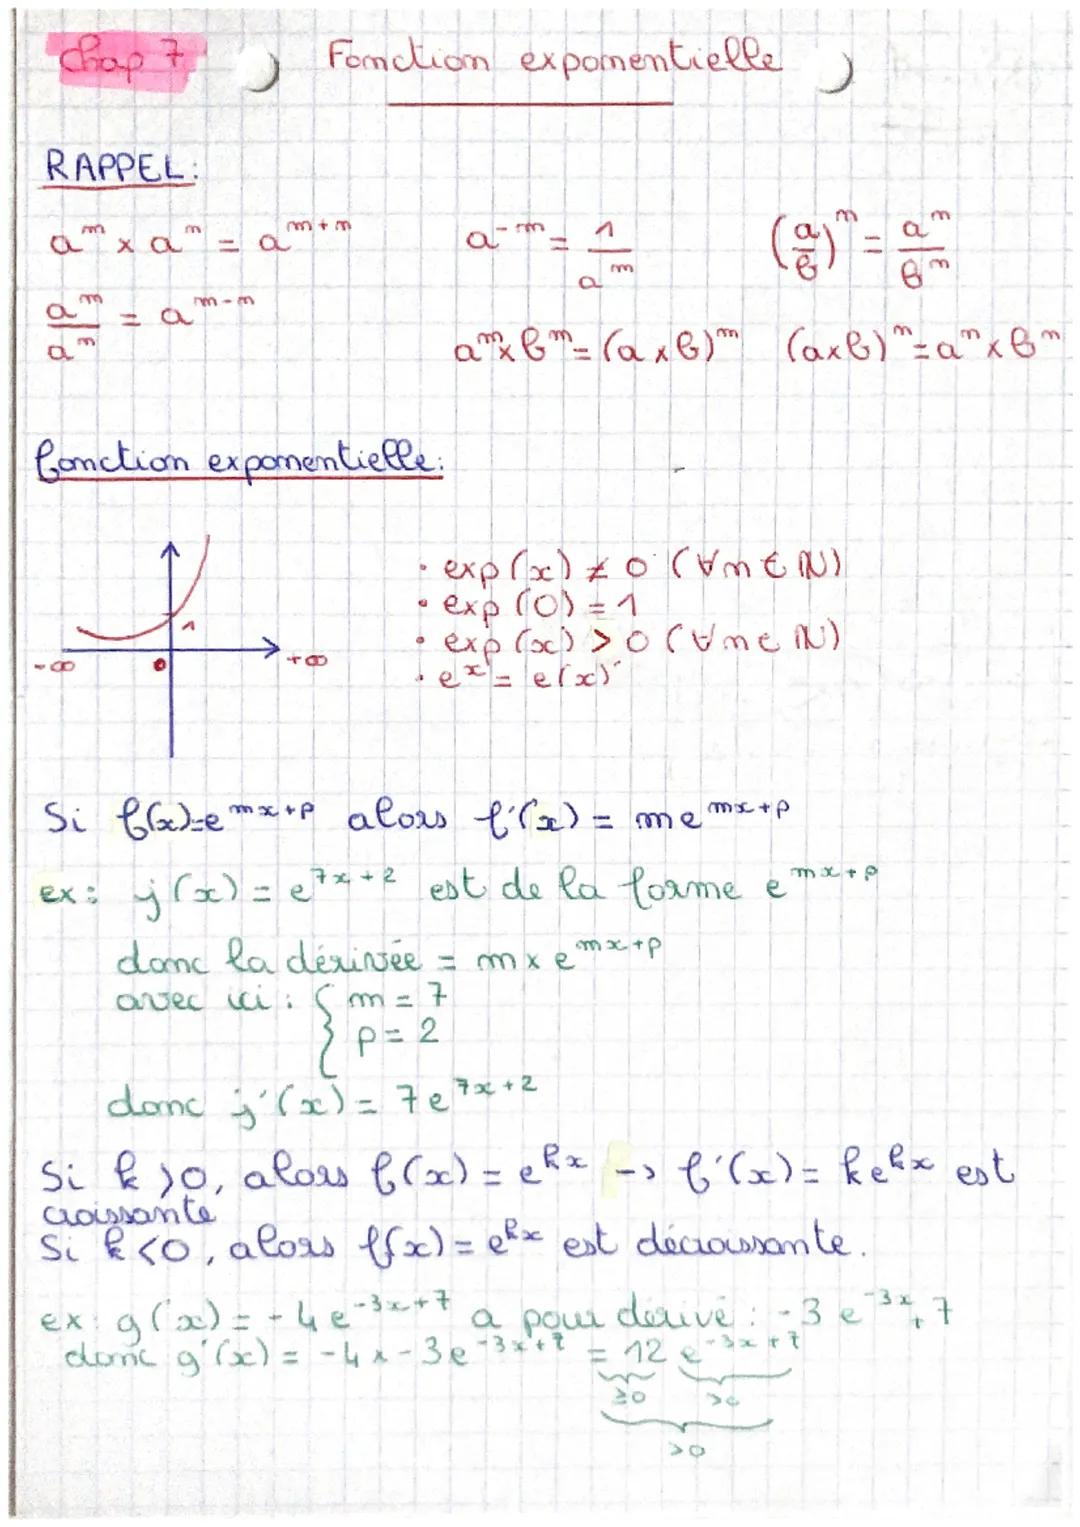 Chap 7 Fonction exponentielle
RAPPEL:
a^m x a^n = a^m+n
a^-m = 1/a^m
(a/b)^n = a^n/b^n
a^m/a^n = a^m-n
a^m x b^m = (a x b)^m
(axb)^n = a^n x b^n
fonction exponentielle:
1
-∞ 0 +∞
• exp(x) ≠ 0 (∀n ∈ ℕ)
• exp(0) = 1
• exp(x) > 0 (∀n ∈ ℕ)
• e^x = e(x)'
Si f(x)=e^mx+p alors f'(x) = me^mx+p
ex: j(x) = e^7x+2 est de la forme e^mx+p
donc la dérivée = m x e^mx+p
avec ici : { m = 7
p = 2
donc j'(x) = 7e^7x+2
Si k>0, alors f(x) = e^kx -> f'(x) = ke^kx est
croissante
Si k<0, alors f(x) = e^kx est décroissante.
ex: g(x) = -4e^-3x+7 a pour dérivé : -3e^-3x+7
donc g'(x) = -4 x -3e^-3x+7 = 12e^-3x+7
≥0 >0
>0